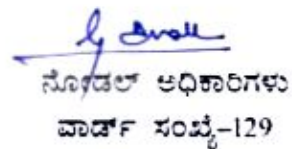 ನೋಡಲ್ ಅಧಿಕಾರಿಗಳು
ವಾರ್ಡ್ ಸಂಖ್ಯೆ-129